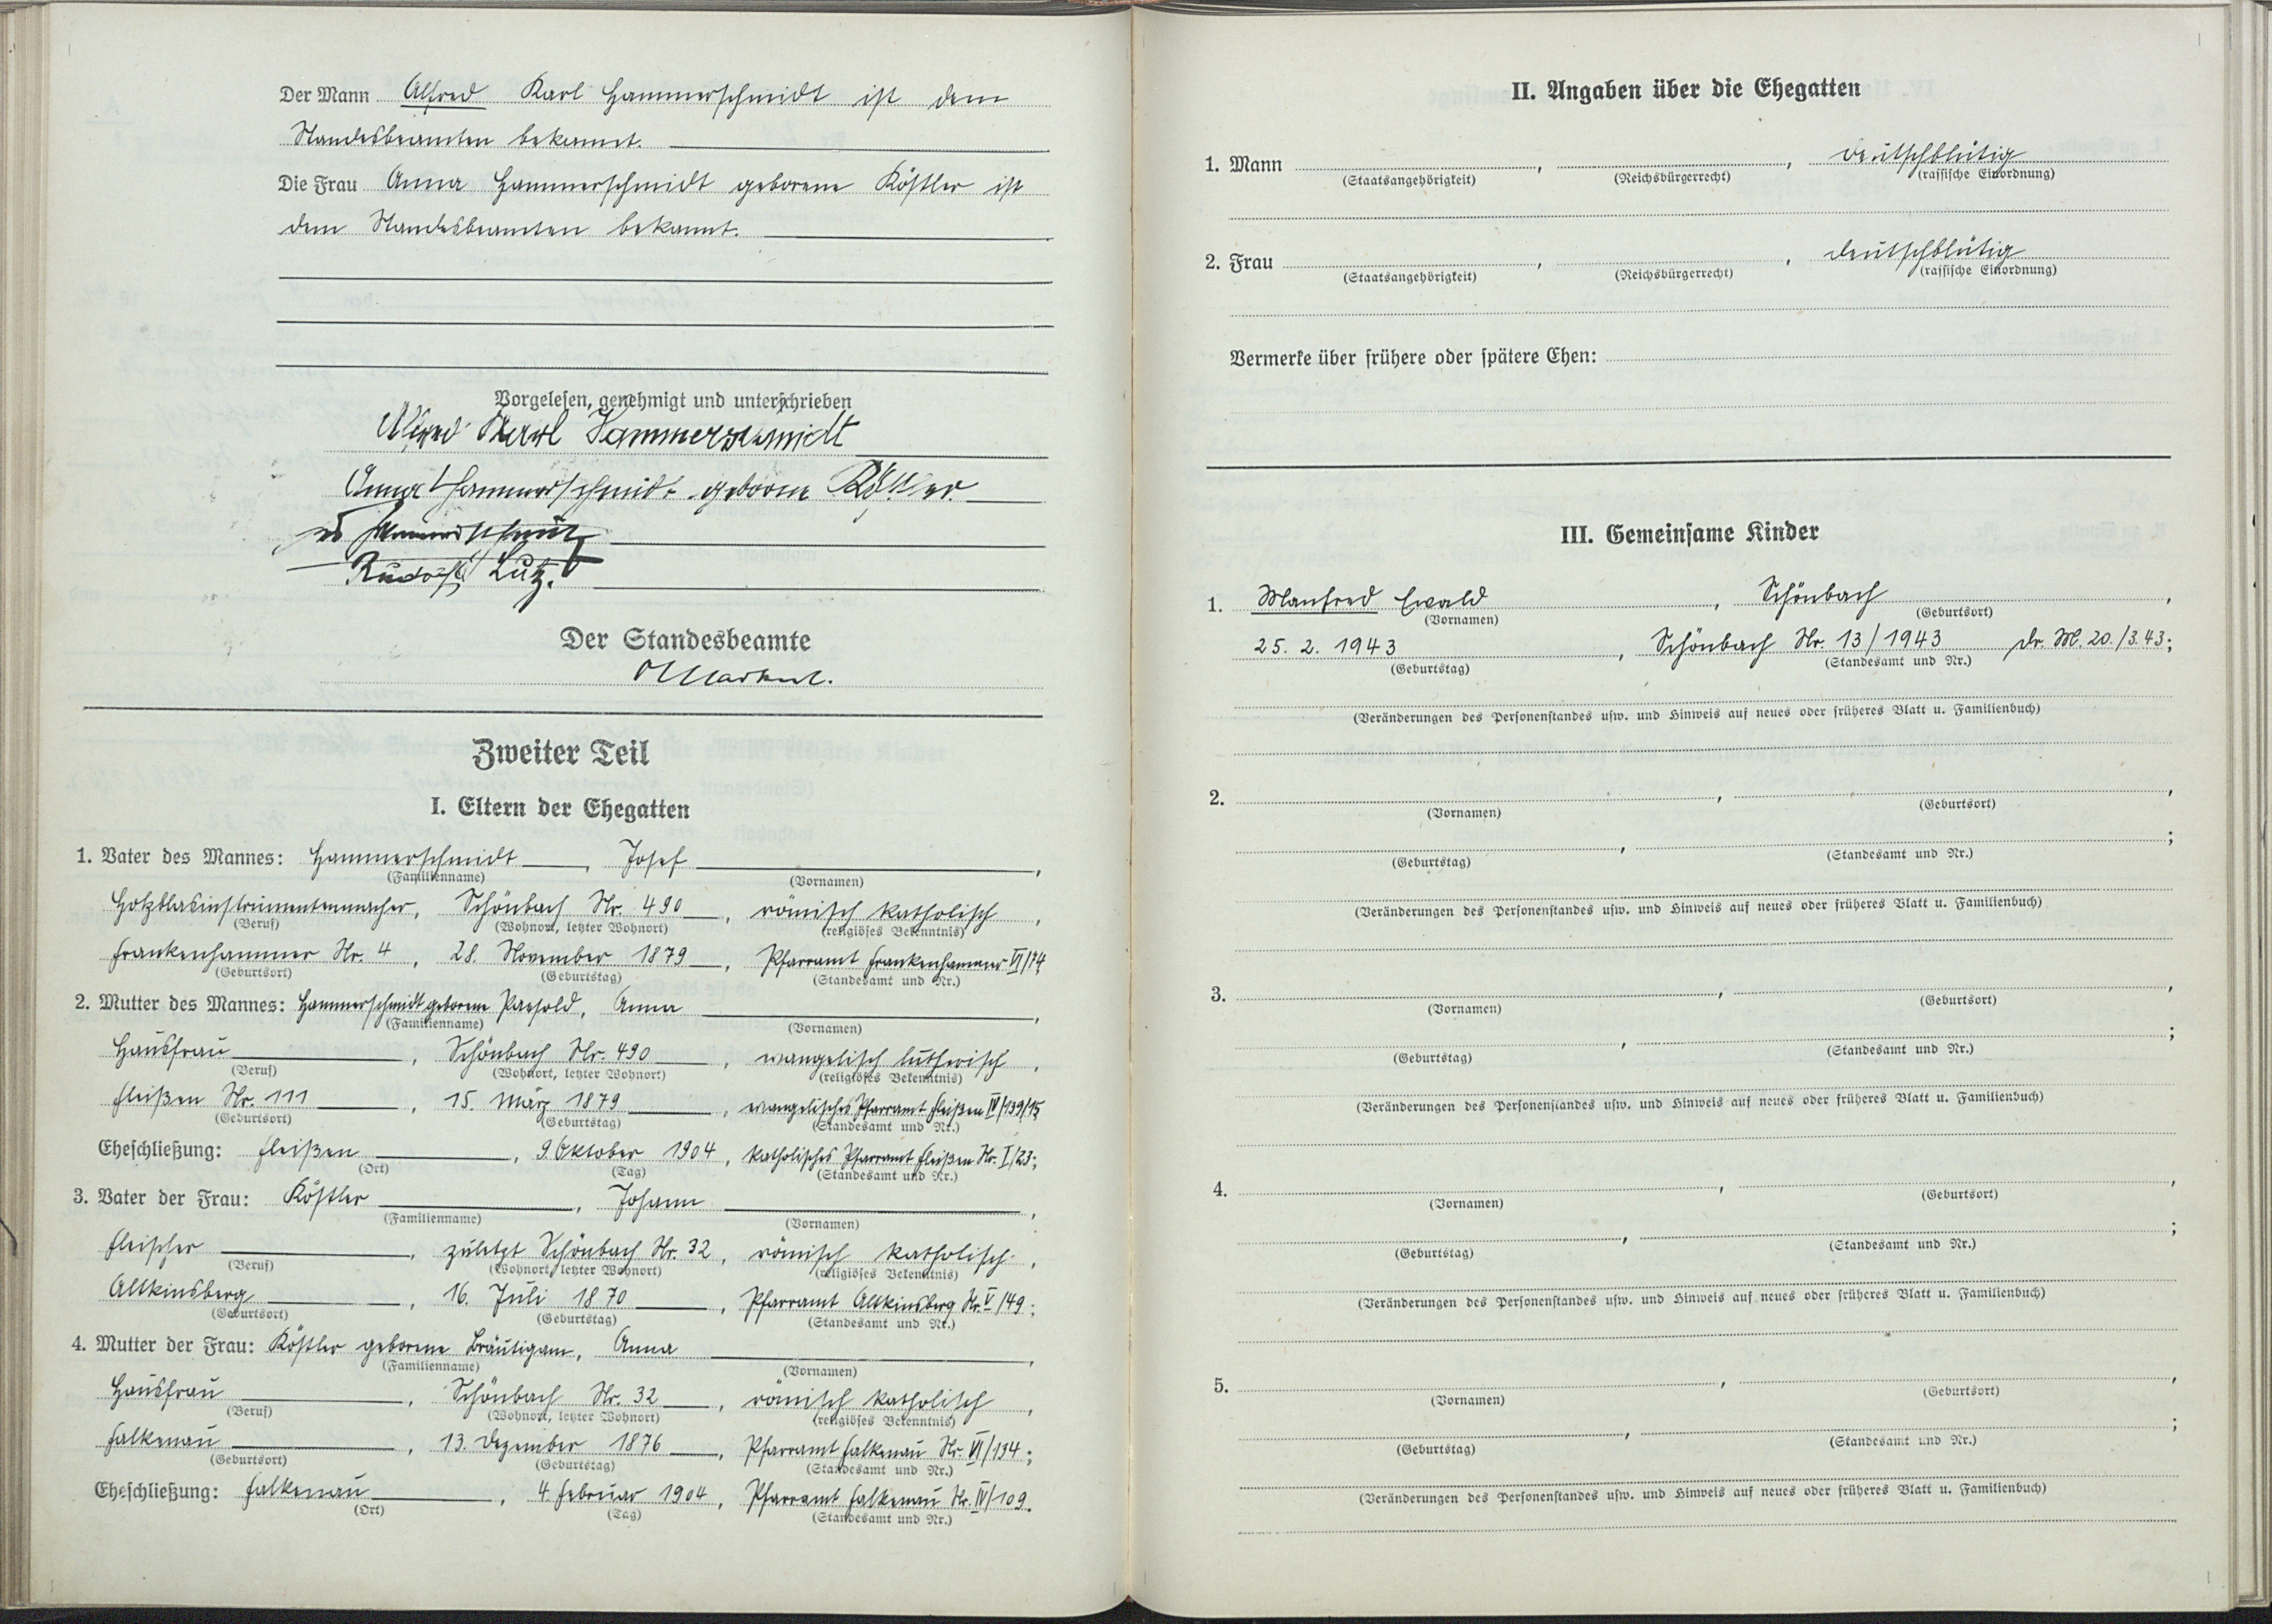 Der Mann Alfred Karl Hammerschmidt ist dem
Standesbeamten bekannt.
Die Frau Anna Hammerschmidt geborene Köstler ist
dem Standesbeamten bekannt.
Vorgelesen, genehmigt und unterschrieben
Alfred Karl Hammerschmidt
Anna Hammerschmidt geborene Köstler
Rudolf Lutz.
Der Standesbeamte
Zweiter Teil
I. Eltern der Ehegatten
1. Vater des Mannes: Hammerschmidt, Josef,
(Familienname) (Vornamen)
Holzblasinstrumentenmacher, Schönbach Nr. 490, römisch katholisch,
(Beruf) (Wohnort, letzter Wohnort) (religiöses Bekenntnis)
Frankenhammer Nr. 4, 28. November 1879, Pfarramt Frankenhammer VI/74
(Geburtsort) (Geburtstag) (Standesamt und Nr.)
2. Mutter des Mannes: Hammerschmidt geborene Paesold, Anna,
(Familienname) (Vornamen)
Hausfrau, Schönbach Nr. 490, evangelisch lutherisch,
(Beruf) (Wohnort, letzter Wohnort) (religiöses Bekenntnis)
Fleißen Nr. 111, 15. März 1879, evangelisches Pfarramt Fleißen IV/139/15
(Geburtsort) (Geburtstag) (Standesamt und Nr.)
Eheschließung: Fleißen, 9. Oktober 1904, katholisches Pfarramt Fleißen Nr. I/23;
(Ort) (Tag) (Standesamt und Nr.)
3. Vater der Frau: Köstler, Johann,
(Familienname) (Vornamen)
Fleischer, zuletzt Schönbach Nr. 32, römisch katholisch,
(Beruf) (Wohnort, letzter Wohnort) (religiöses Bekenntnis)
Altkinsberg, 16. Juli 1870, Pfarramt Altkinsberg Nr. V/49;
(Geburtsort) (Geburtstag) (Standesamt und Nr.)
4. Mutter der Frau: Köstler geborene Bräutigam, Anna,
(Familienname) (Vornamen)
Hausfrau, Schönbach Nr. 32, römisch katholisch,
(Beruf) (Wohnort, letzter Wohnort) (religiöses Bekenntnis)
Falkenau, 13. Dezember 1876, Pfarramt Falkenau Nr. VI/134;
(Geburtsort) (Geburtstag) (Standesamt und Nr.)
Eheschließung: Falkenau, 4. Februar 1904, Pfarramt Falkenau Nr. IV/109.
(Ort) (Tag) (Standesamt und Nr.)
II. Angaben über die Ehegatten
1. Mann , , deutschblütig
(Staatsangehörigkeit) (Reichsbürgerrecht) (rassische Einordnung)
2. Frau , , deutschblütig
(Staatsangehörigkeit) (Reichsbürgerrecht) (rassische Einordnung)
Vermerke über frühere oder spätere Ehen:
III. Gemeinsame Kinder
1. Manfred Ewald, Schönbach,
(Vornamen) (Geburtsort)
25. 2. 1943, Schönbach Nr. 13/1943 Dr. M. 20./3.43;
(Geburtstag) (Standesamt und Nr.)
(Veränderungen des Personenstandes usw. und Hinweis auf neues oder früheres Blatt u. Familienbuch)
2. , ,
(Vornamen) (Geburtsort)
, ;
(Geburtstag) (Standesamt und Nr.)
(Veränderungen des Personenstandes usw. und Hinweis auf neues oder früheres Blatt u. Familienbuch)
3. , ,
(Vornamen) (Geburtsort)
, ;
(Geburtstag) (Standesamt und Nr.)
(Veränderungen des Personenstandes usw. und Hinweis auf neues oder früheres Blatt u. Familienbuch)
4. , ,
(Vornamen) (Geburtsort)
, ;
(Geburtstag) (Standesamt und Nr.)
(Veränderungen des Personenstandes usw. und Hinweis auf neues oder früheres Blatt u. Familienbuch)
5. , ,
(Vornamen) (Geburtsort)
, ;
(Geburtstag) (Standesamt und Nr.)
(Veränderungen des Personenstandes usw. und Hinweis auf neues oder früheres Blatt u. Familienbuch)